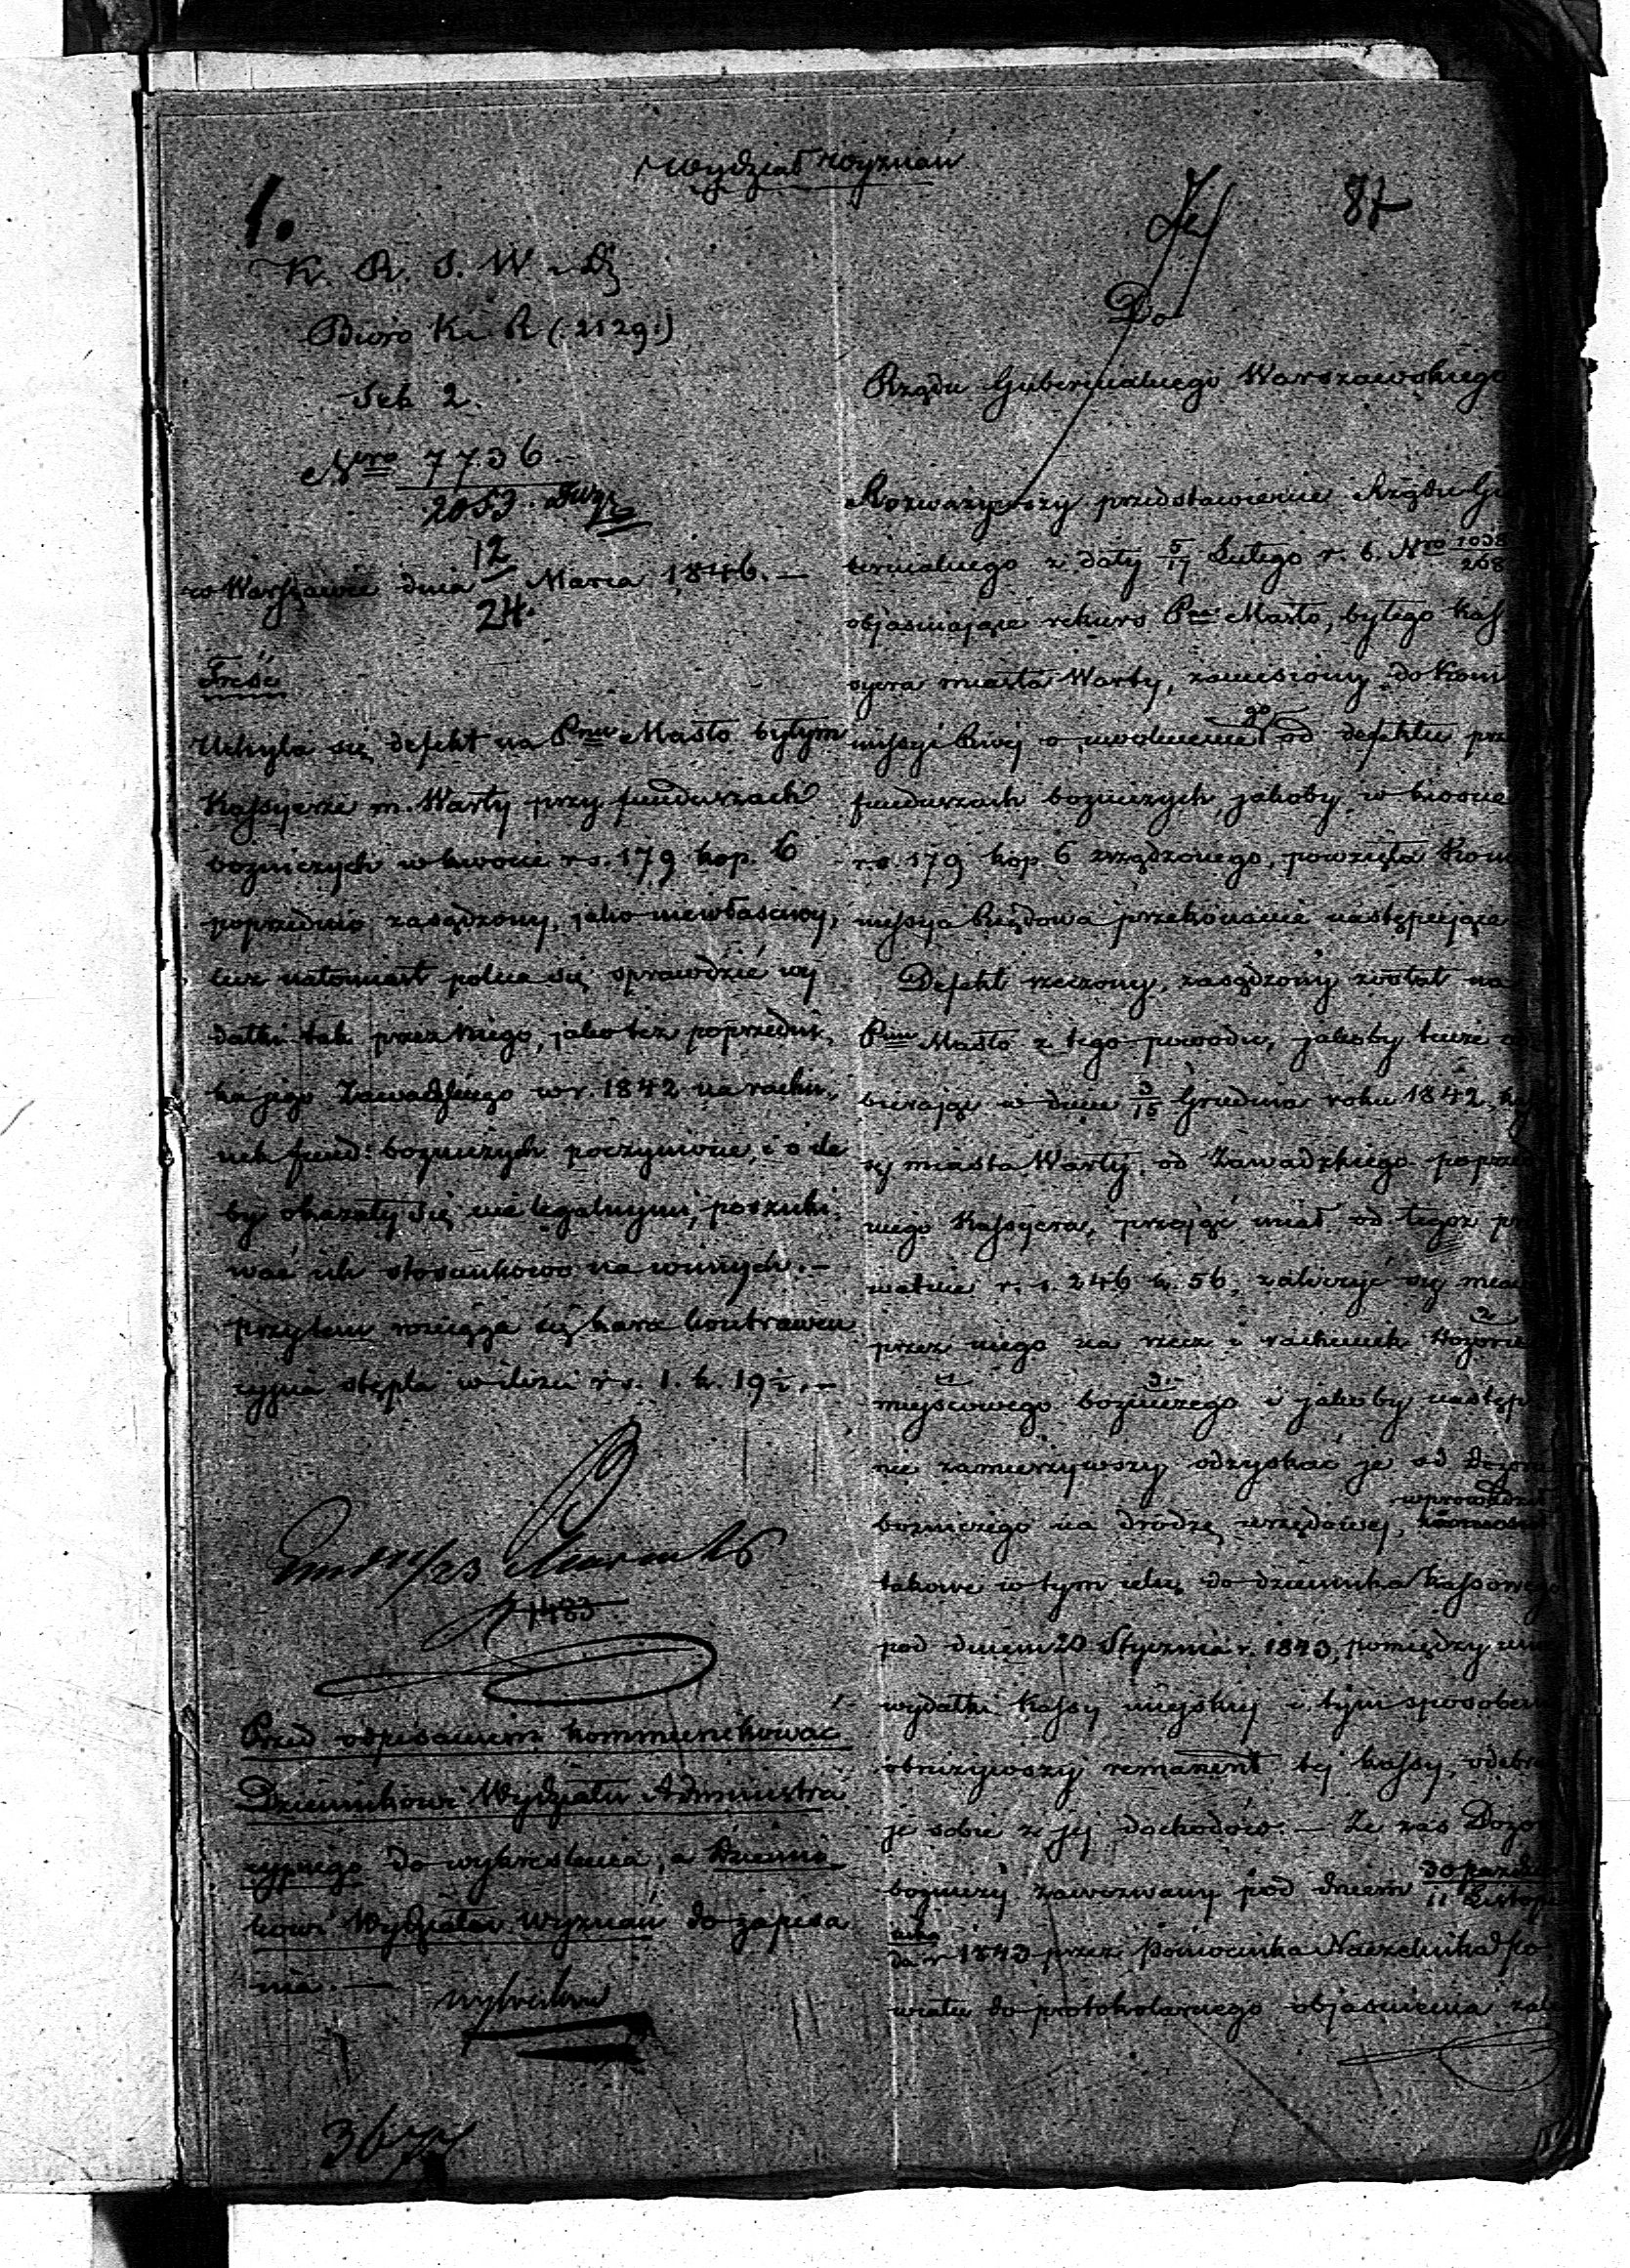 Wydział Wyznań
1.
87
K. R. S. W. i D.
Biuro K. i R (2129.)
Sek 2.
Nro 7736
2053.
w Warszawie dnia 12/24 Marca 1846. —
Treść
Uchyla się defekt na Pnu Masło byłym
Kassyerze m. Warty przy funduszach
bożniczych w kwocie rs. 179 kop. 6
poprzednio zasądzony, jako niewłaściwy,
lecz natomiast poleca się sprawdzić wy
datki tak przez niego, jako też poprzedni„
ka jego Zawadzkiego w r. 1842 na rachu„
nek fund: bożniczych poczynione, i o ile
by okazały się nie legalnymi, poszuki„
wać ich stosunkowo na winnych. —
przytem rozciąga się kara kontrawen
cyjna stępla w ilości rs. 1. k. 19½. —
1483
Przed odpisaniem kommunikować
Dziennikowi Wydziału Administra
cyjnego do wykreślenia, a Dzienni„
kowi Wydziału Wyznań do zapisa
nia. —
Do
Rządu Gubernialnego Warszawskiego
Rozważywszy przedstawienie Rządu Gu
bernialnego z daty 5/17 Lutego r. b. Nro 1038/268
objaśniające rekurs Pna Masło, byłego Kas
syera miasta Warty, zaniesiony do Kom
missyi Rwej o uwolnienie go od defektu przy
funduszach bożniczych, jakoby w kwocie
rs. 179 kop 6 zrządzonego, powzięła Kom
missya Rządowa przekonanie następujące
Defekt rzeczony, zasądzony został na
Pnu Masło z tego powodu, jakoby tenże od
bierając w dniu 3/15 Grudnia roku 1842, kas
sę miasta Warty, od Zawadzkiego poprzed
niego Kassyera, przyjąć miał od tegoż pry
watnie r. s. 246 k. 56, zaliczyć się miane
przez niego na rzecz i rachunek Dozoru
miejscowego bożniczego i jakoby następ
nie zamierzywszy odzyskać je od Dozoru
bożniczego na drodze urzędowej, wprowadził
takowe w tym celu do dziennika Kassowego
pod dniem 20 Stycznia r. 1843, pomiędzy inne
wydatki Kassy miejskiej i tym sposobem
obniżywszy remanent tej kassy, odebrał
je sobie z jej dochodów. — Że zaś Dozór
bożniczy zawezwany pod dniem 30 Paźdz/11 Listopa
nika/da r 1843 przez Pomocnika Naczelnika Po
wiatu do protokolarnego objaśnienia